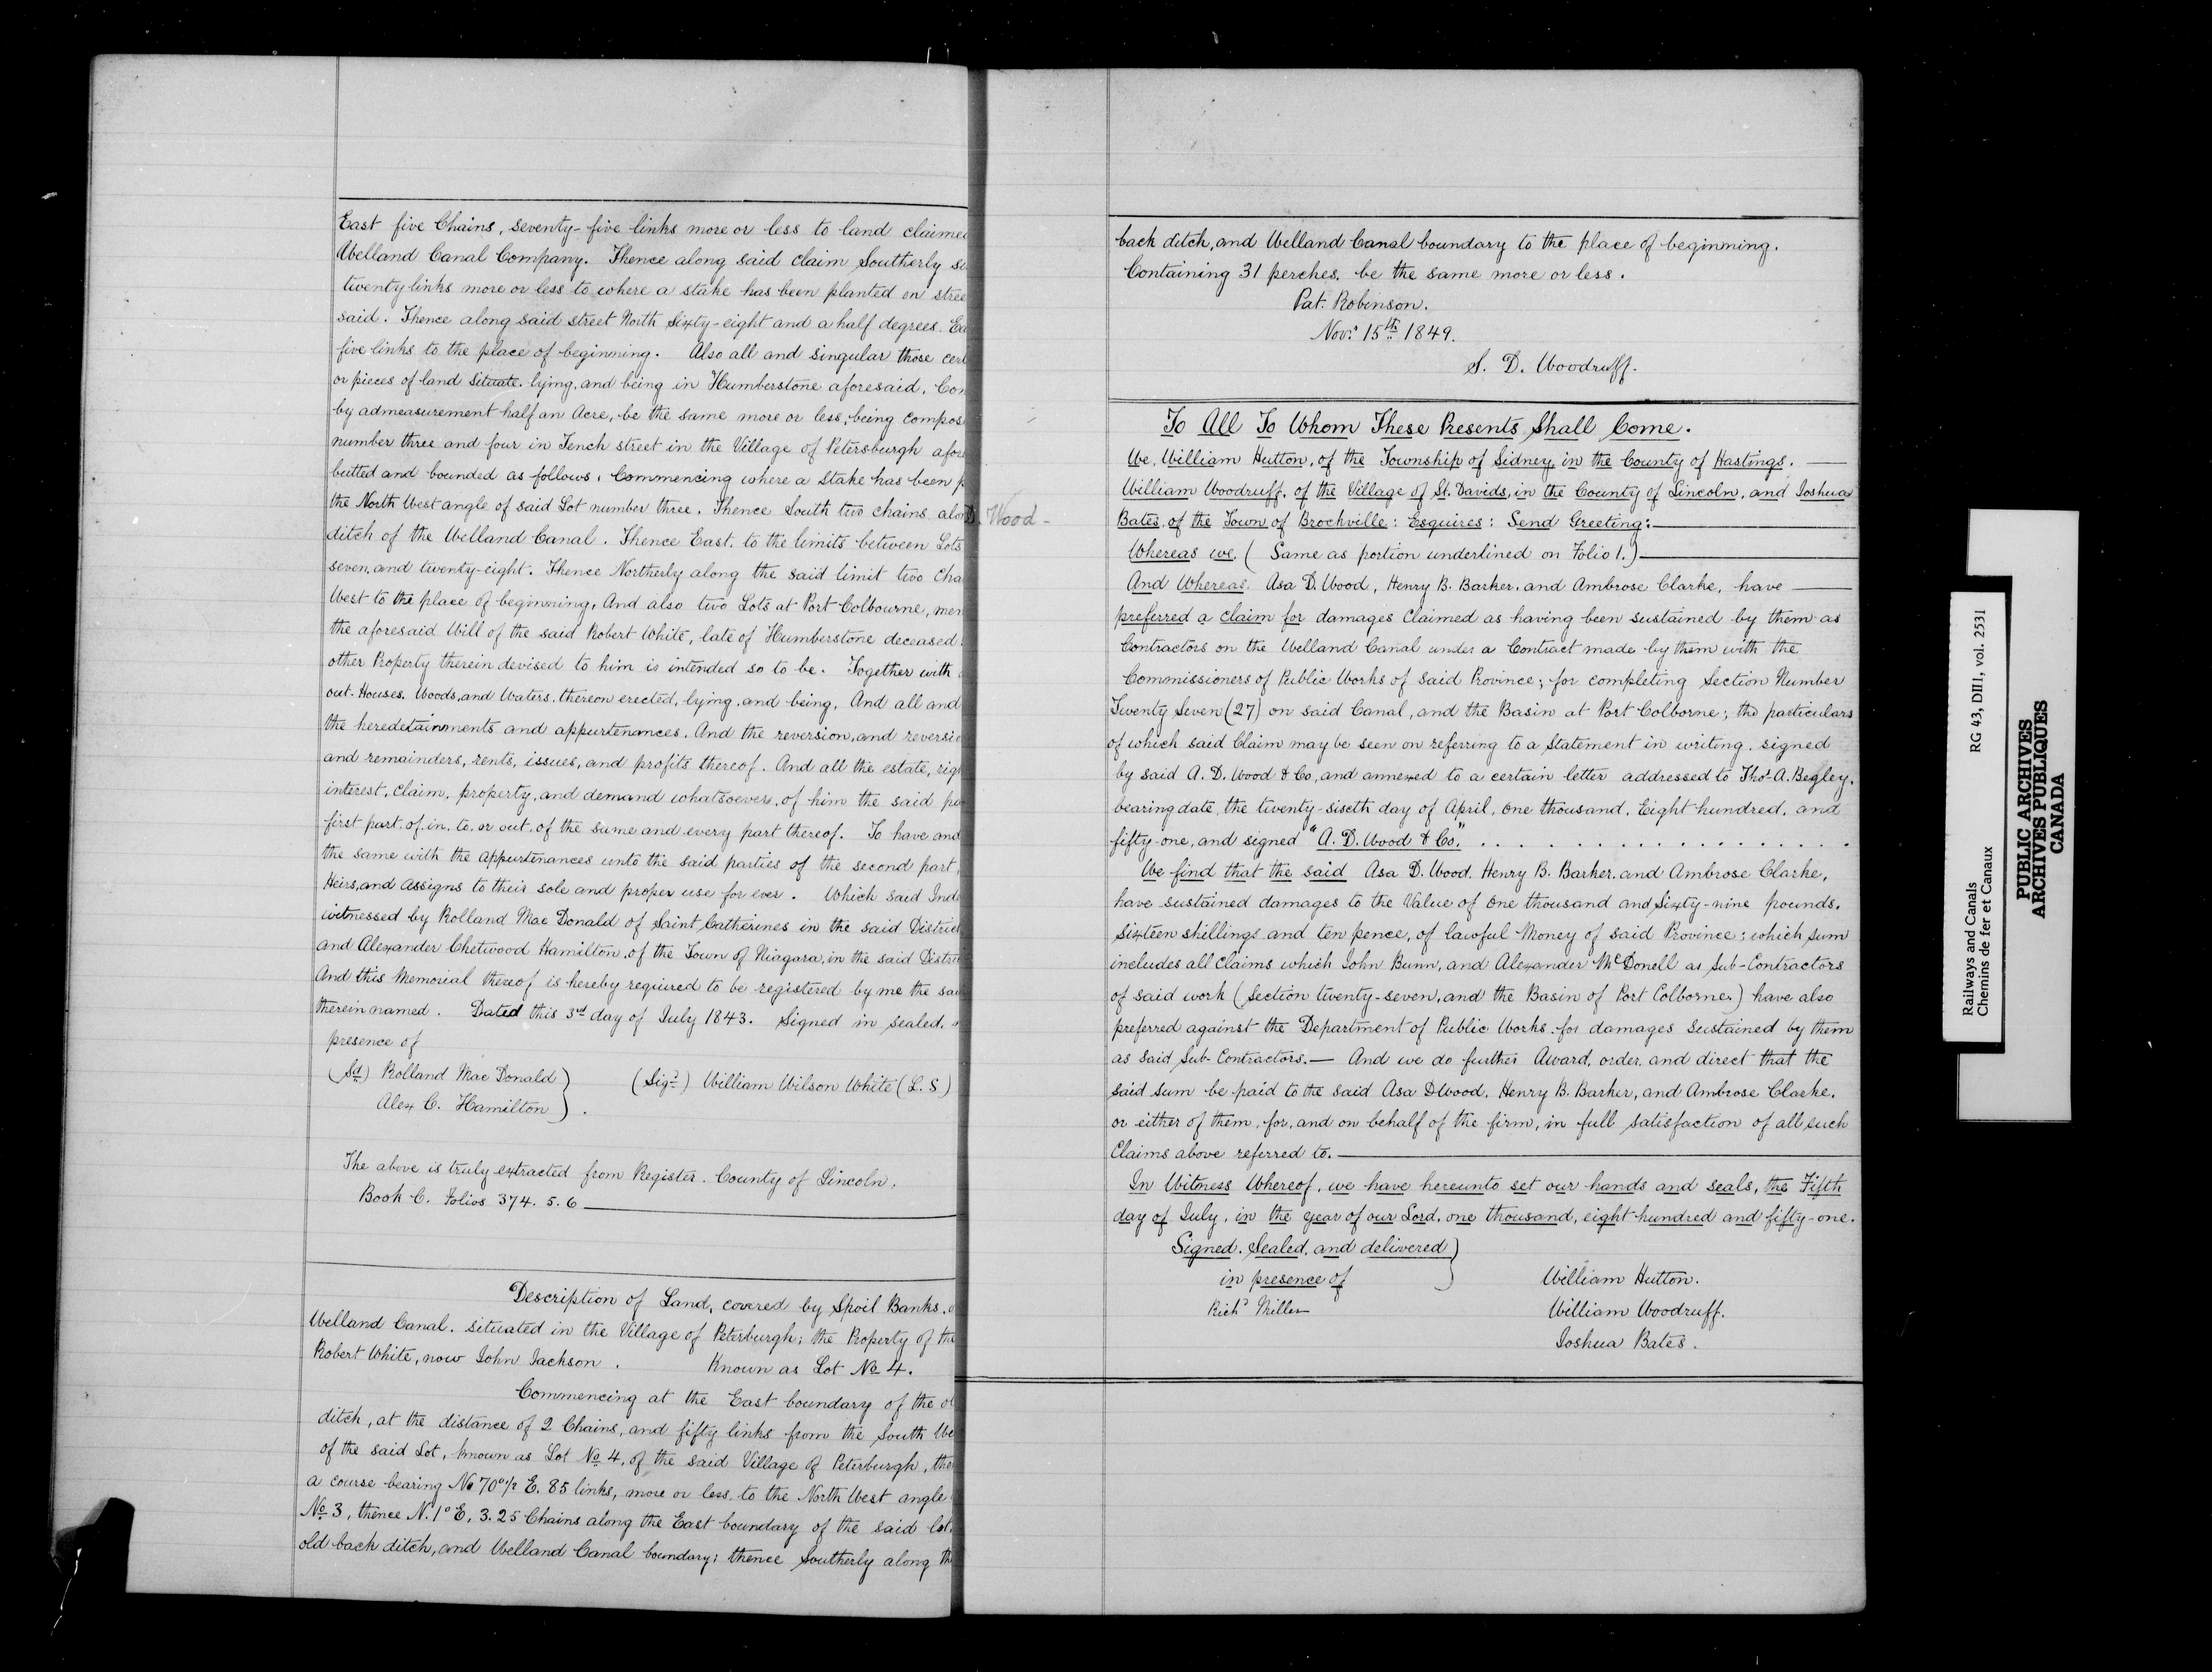 East five Chains, seventy-five links more or less to land claimed
Welland Canal Company. Thence along said claim Southerly
twenty links more or less to where a stake has been planted on stree
said. Thence along said street North Sixty-eight and a half degrees. Ea
five links to the place of beginning. Also all and singular those cert
or pieces of land situate. lying, and being in Humberstone aforesaid, Con
by admeasurement half an Acre, be the same more or less, being compos
number three and four in Tench street in the Village of Petersburgh afore
butted and bounded as follows, Commencing where a Stake has been p
the North West angle of said Lot number three. Thence South two chains alon
ditch of the Welland Canal. Thence East. to the limits between Lots
seven, and twenty-eight. Thence Northerly along the said limit two Cha
West to the place of beginning, And also two Lots at Port Colbourne, men
the aforesaid Will of the said Robert White, late of Humberstone deceased
other Property therein devised to him is intended so to be. Together with
out-Houses, Woods, and Waters, thereon erected, lying, and being, And all and
the heredetainments and appurtenances, And the reversion, and reversio
and remainders, rents, issues, and profits thereof. And all the estate, righ
interest, claim, property, and demand whatsoever, of him the said pa
first part, of, in, to, or out, of the same and every part thereof. To have and
the same with the appurtenances unto the said parties of the second part,
Heirs, and assigns to their sole and proper use for ever. Which said Inde
witnessed by Rolland Mac Donald of Saint Catherines in the said District
and Alexander Chetwood Hamilton, of the Town of Niagara, in the said Distri
And this Memorial thereof is hereby required to be registered by me the sai
therein named. Dated this 3rd day of July 1843. Signed in sealed.
presence of
(Sd) Rolland Mac Donald } (Sigd) William Wilson White (L. S)
Alex C. Hamilton } .
The above is truly extracted from Register. County of Lincoln.
Book C. Folios 374. 5. 6
Description of Land, covered by Spoil Banks,
Welland Canal. situated in the Village of Peterburgh; the Property of the
Robert White, now John Jackson. Known as Lot No 4.
Commencing at the East boundary of the ol
ditch, at the distance of 2 Chains, and fifty links from the South We
of the said Lot, known as Lot No 4, of the said Village of Peterburgh, then
a course bearing No 70°1/2 E. 85 links, more or less, to the North West angle
No 3, thence N. 1° E, 3.25 Chains along the East boundary of the said lot,
old back ditch, and Welland Canal boundary; thence Southerly along th
D. Wood -
back ditch, and Welland Canal boundary to the place of beginning.
Containing 31 perches, be the same more or less.
Pat. Robinson.
Nov. 15th 1849.
S. D. Woodruff.
To All To Whom These Presents Shall Come.
We, William Hutton, of the Township of Sidney, in the County of Hastings.
William Woodruff, of the Village of St. Davids, in the County of Lincoln, and Joshua
Bates, of the Town of Brockville: Esquires: Send Greeting:
Whereas we, (Same as portion underlined on Folio 1.)
And Whereas. Asa D. Wood, Henry B. Barker, and Ambrose Clarke, have
preferred a claim for damages claimed as having been sustained by them as
Contractors on the Welland Canal under a Contract made by them with the
Commissioners of Public Works of said Province; for completing Section Number
Twenty Seven (27) on said Canal, and the Basin at Port Colborne; the particulars
of which said Claim may be seen on referring to a Statement in writing, signed
by said A. D. Wood & Co, and annexed to a certain letter addressed to Thos. A. Begley,
bearing date, the twenty-siseth day of April, One thousand, Eight hundred, and
fifty-one, and signed "A. D. Wood & Co." . . . . . . . . . . . . . . . . . .
We find that the said Asa D. Wood, Henry B. Barker, and Ambrose Clarke,
have sustained damages to the Value of One thousand and Sixty-nine pounds,
Sixteen shillings and ten pence, of lawful Money of said Province; which sum
includes all Claims which John Bunn, and Alexander McDonell as Sub-Contractors
of said work (Section twenty-seven, and the Basin of Port Colborne,) have also
preferred against the Department of Public Works, for damages sustained by them
as said Sub-Contractors.— And we do further Award, order, and direct that the
said sum be paid to the said Asa D Wood, Henry B. Barker, and Ambrose Clarke,
or either of them, for, and on behalf of the firm, in full satisfaction of all such
Claims above referred to.
In Witness Whereof, we have hereunto set our hands and seals, the Fifth
day of July, in the year of our Lord, one thousand, eight hundred and fifty-one.
Signed, Sealed, and delivered }
in presence of } William Hutton.
Richd Miller William Woodruff.
Joshua Bates.
Railways and Canals RG 43, DII1, vol. 2531
Chemins de fer et Canaux
PUBLIC ARCHIVES
ARCHIVES PUBLIQUES
CANADA